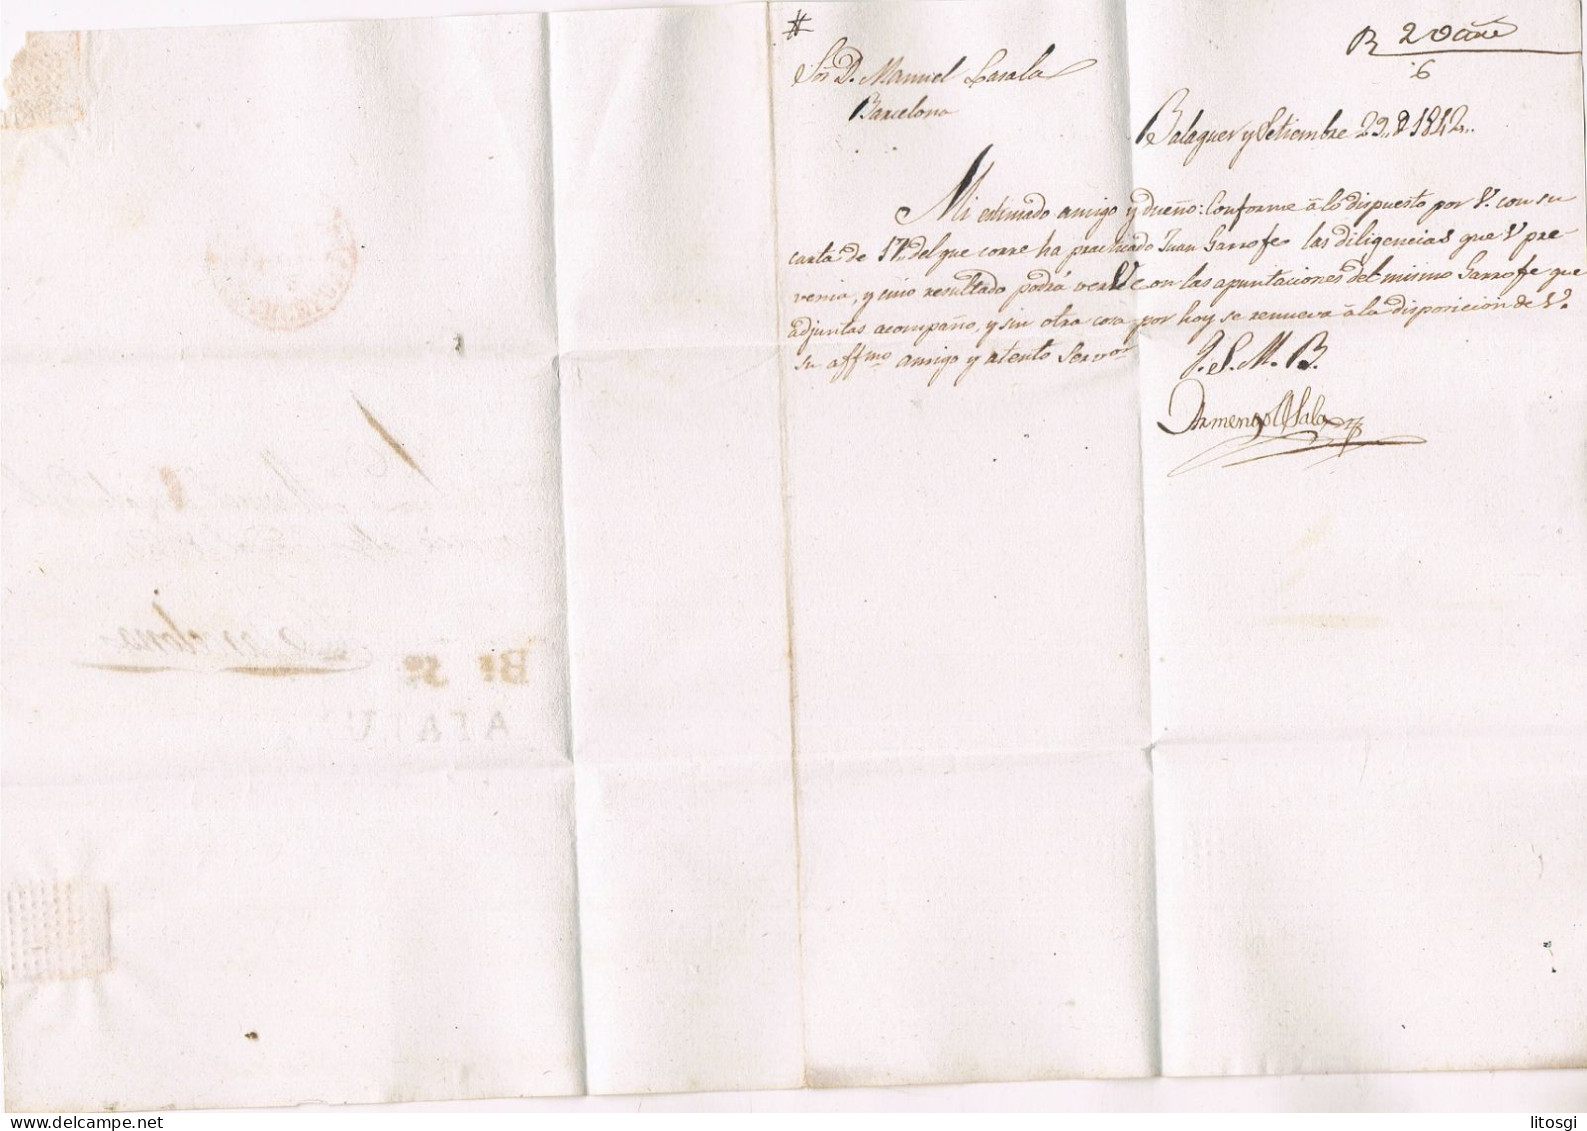 #
R 2 Octre
6
Sor. D. Manuel Lasala
Barcelona
Balaguer y Setiembre 29,, d 1842,,
Mi estimado amigo y dueño: Conforme á lo dispuesto por V. con su
carta de 17 del que corre ha practicado Juan Garrofe las diligencias que V pre-
venia, y cuio resultado podrá ver V con las apuntaciones del mismo Garrofe que
adjuntas acompaño, y sin otra cosa por hoy se renueva á la disposicion de V.
su affmo amigo y atento Servor
Q. S. M. B.
Armengol Sala
Bs 5o
ATATU
Barcelona
litosgi